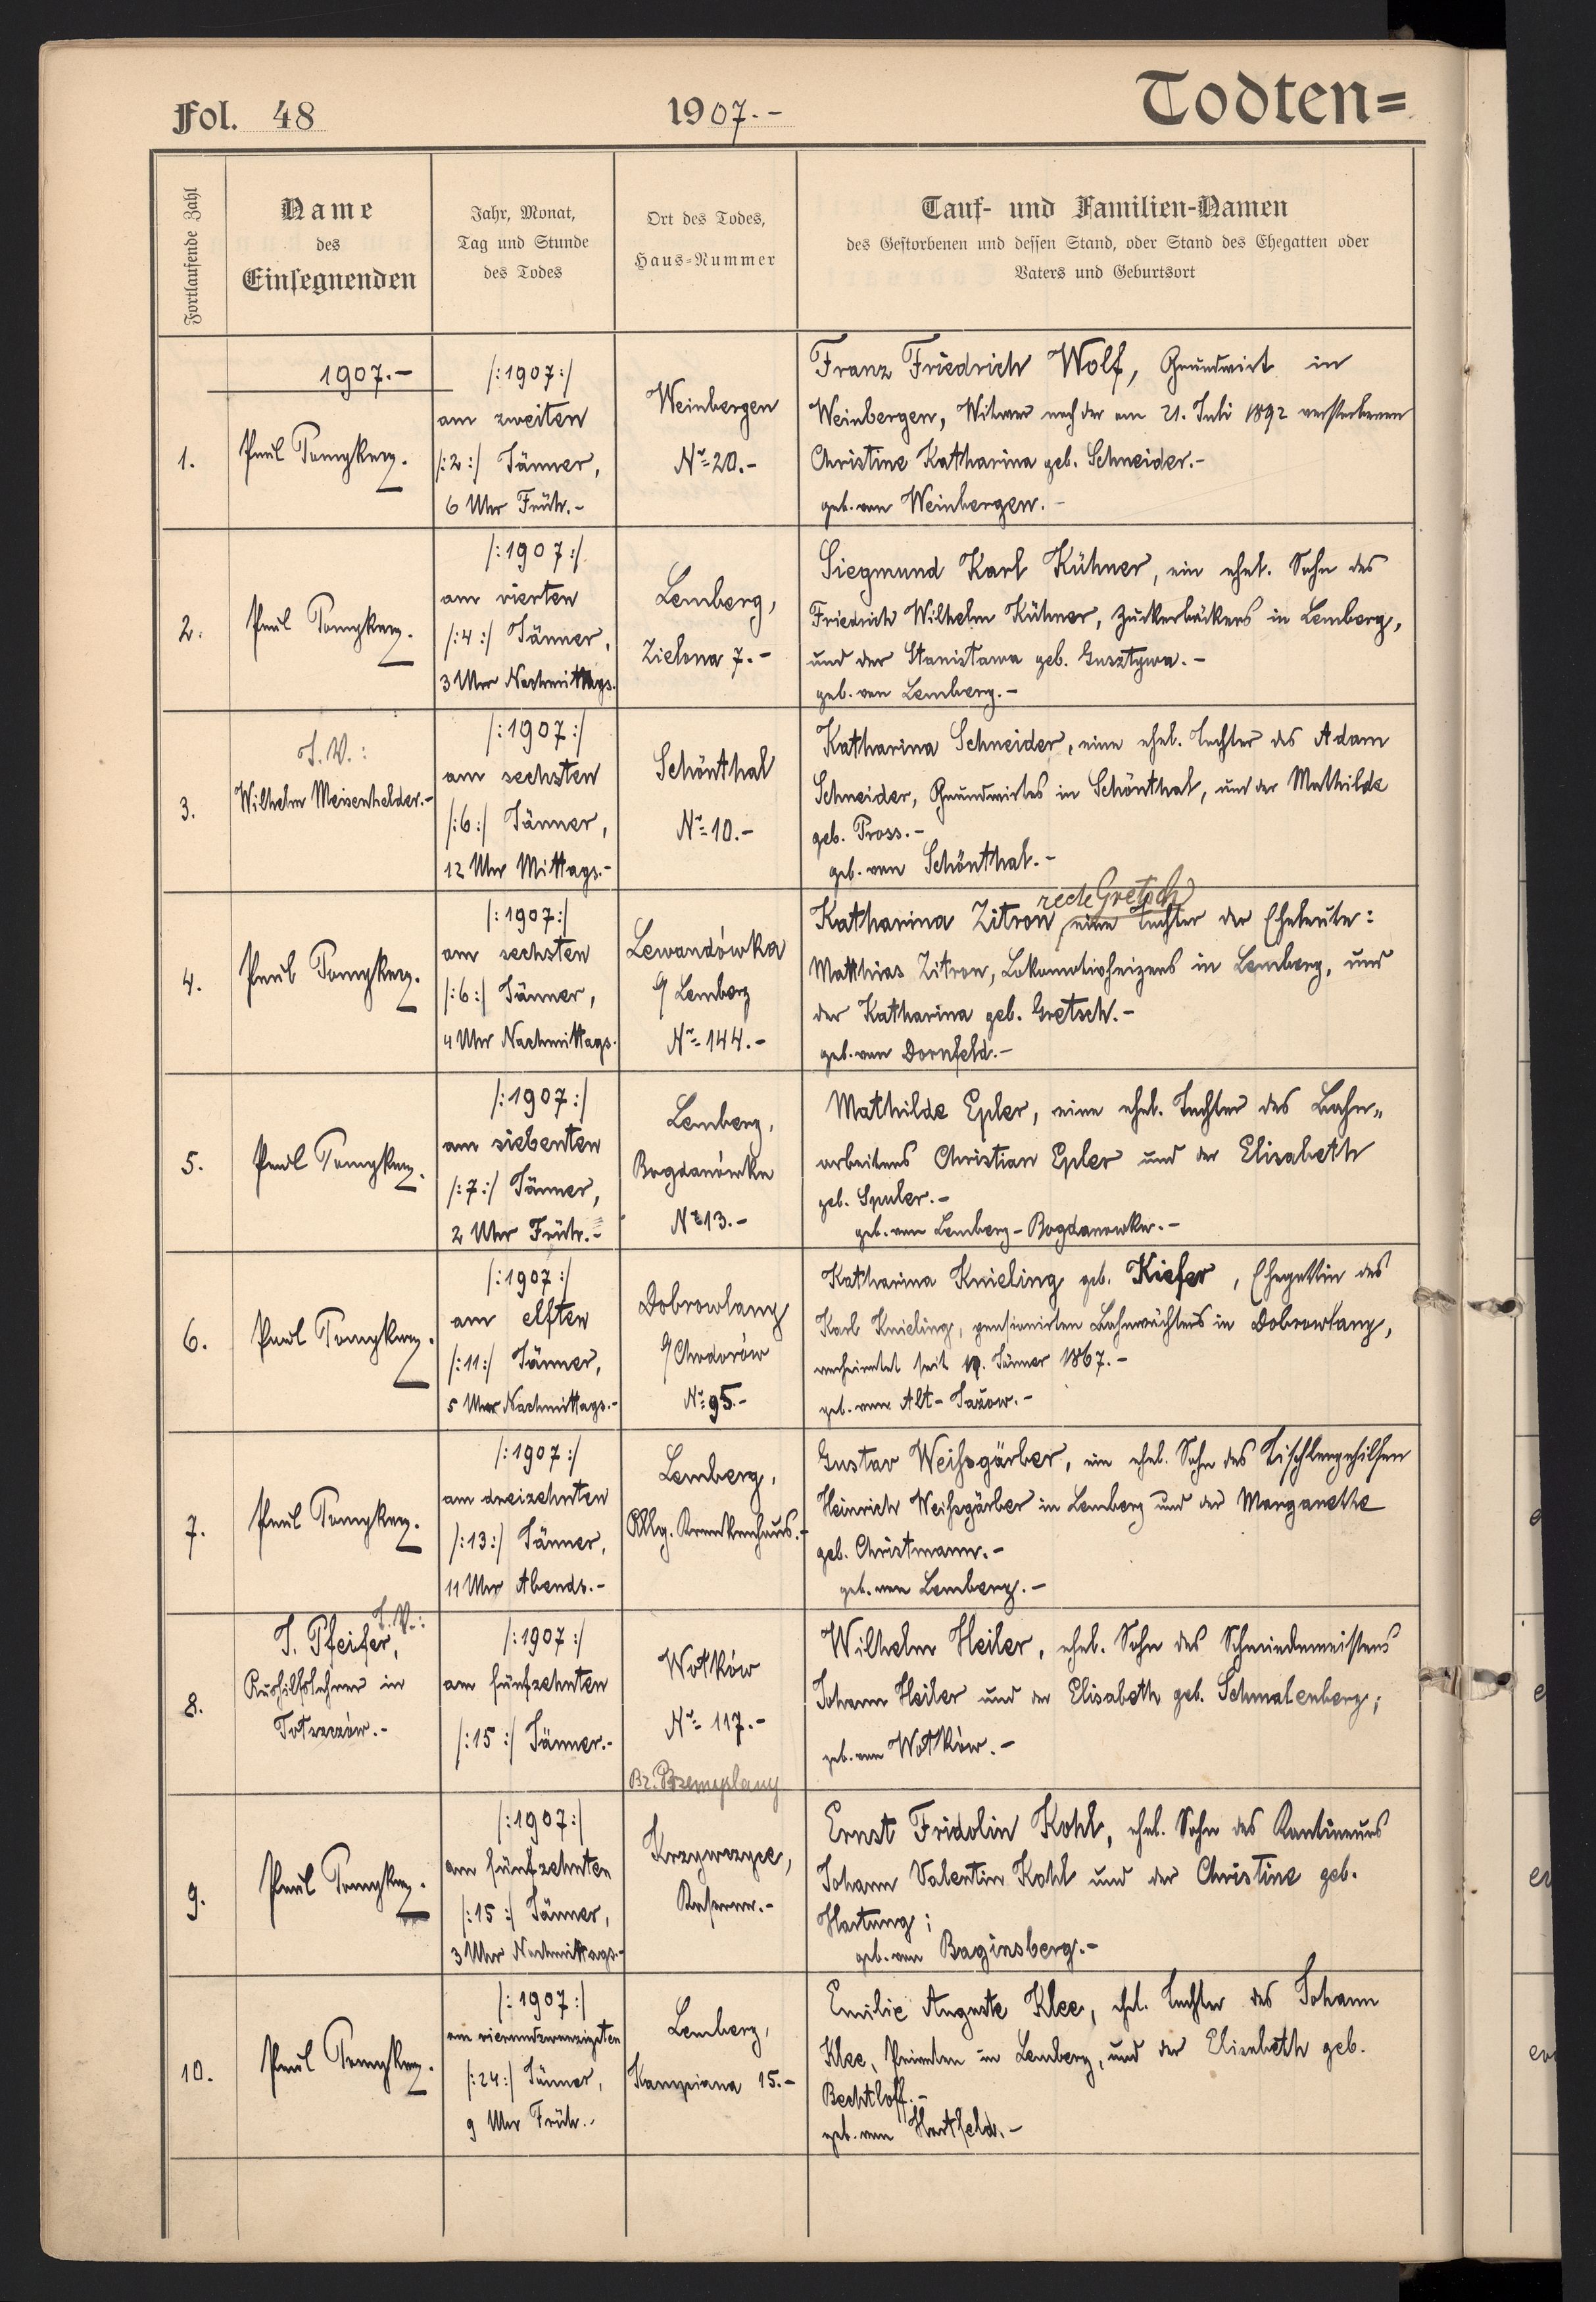 Fol. 48
1907.-
Todten=
Fortlaufende Zahl
Name
des
Einsegnenden
Jahr, Monat,
Tag und Stunde
des Todes
Ort des Todes,
Haus-Nummer
Tauf- und Familien-Namen
des Gestorbenen und dessen Stand, oder Stand des Ehegatten oder
Vaters und Geburtsort
1907.-
1.
Paul
/:1907:/
am zweiten
/:2:/ Jänner,
6 Uhr Früh.-
Weinbergen
Nr= 20.-
Franz Friedrich Wolf, Grundwirt in
Weinbergen, Witwer nach der am 21. Juli 1892 verstorbenen
Christine Katharina geb. Schneider.-
geb. von Weinbergen.-
2.
Paul
/:1907:/
am vierten
/:4:/ Jänner,
3 Uhr Nachmittags.
Lemberg,
Zielona 7.-
Siegmund Karl Kühner, ein ehel. Sohn des
Friedrich Wilhelm Kühner, Zuckerbäckers in Lemberg,
und der Stanisława geb.
geb. von Lemberg.-
3.
I. V.:
Wilhelm Meisenhelder.-
/:1907:/
am sechsten
/:6:/ Jänner,
12 Uhr Mittags.-
Schönthal
Nr= 10.-
Katharina Schneider, eine ehel. Tochter des Adam
Schneider, Grundwirtes in Schönthal, und der Mathilde
geb. Pross.-
geb. von Schönthal.-
4.
Paul
/:1907:/
am sechsten
/:6:/ Jänner,
4 Uhr Nachmittags.
Lewandówka
9/ Lemberg
Nr= 144.-
recte Gretsch
Katharina Zitron, eine Tochter der Eheleute:
Matthias Zitron, Lokomotivheizers in Lemberg, und
der Katharina geb. Gretsch.-
geb. von Dornfeld.-
5.
Paul
/:1907:/
am siebenten
/:7:/ Jänner,
2 Uhr Früh.-
Lemberg,
Bogdanówka
Nr 13.-
Mathilde Epler, eine ehel. Tochter des Bahn-
arbeiters Christian Epler und der Elisabeth
geb. Spuler.-
geb. von Lemberg-Bogdanowka.-
6.
Paul
/:1907:/
am elften
/:11:/ Jänner,
5 Uhr Nachmittags.-
Dobrowlany
9/ Chodorów
Nr= 95.-
Katharina Knieling geb. Kiefer, Ehegattin des
Karl Knieling, pensionirten Bahnwächters in Dobrowlany,
verheiratet seit Jänner 1867.-
geb. von Alt-Jażow.-
7.
Paul
/:1907:/
am dreizehnten
/:13:/ Jänner,
11 Uhr Abends.-
Lemberg,
Allg. Krankenhaus.-
Gustav Weißgärber, ein ehel. Sohn des Tischlergehilfen
Heinrich Weißgärber in Lemberg und der Margarethe
geb. Christmann.-
geb. von Lemberg.-
8.
I. V.:
J. Pfeifer,
Aushilfslehrer in
Tołszczów.-
/:1907:/
am fünfzehnten
/:15:/ Jänner.-
Wołków
Nr= 117.-
Bz. Przemyslany
Wilhelm Heiler, ehel. Sohn des Schmiedemeisters
Johann Heiler und der Elisabeth geb. Schmalenberg;
geb. von Wołków.-
9.
Paul
/:1907:/
am fünfzehnten
/:15:/ Jänner,
3 Uhr Nachmittags.-
Krzywczyce,
Kaserne.-
Ernst Fridolin Kohl, ehel. Sohn des Kantineurs
Johann Valentin Kohl und der Christine geb.
Hartung;
geb. von Baginsberg.-
10.
Paul
/:1907:/
am vierundzwanzigsten
/:24:/ Jänner,
9 Uhr Früh.-
Lemberg,
Kampiana 15.-
Emilie Auguste Klee, ehel. Tochter des Johann
Klee, Privaten in Lemberg, und der Elisabeth geb.
Bechtloff.-
geb. von Hartfeld.-